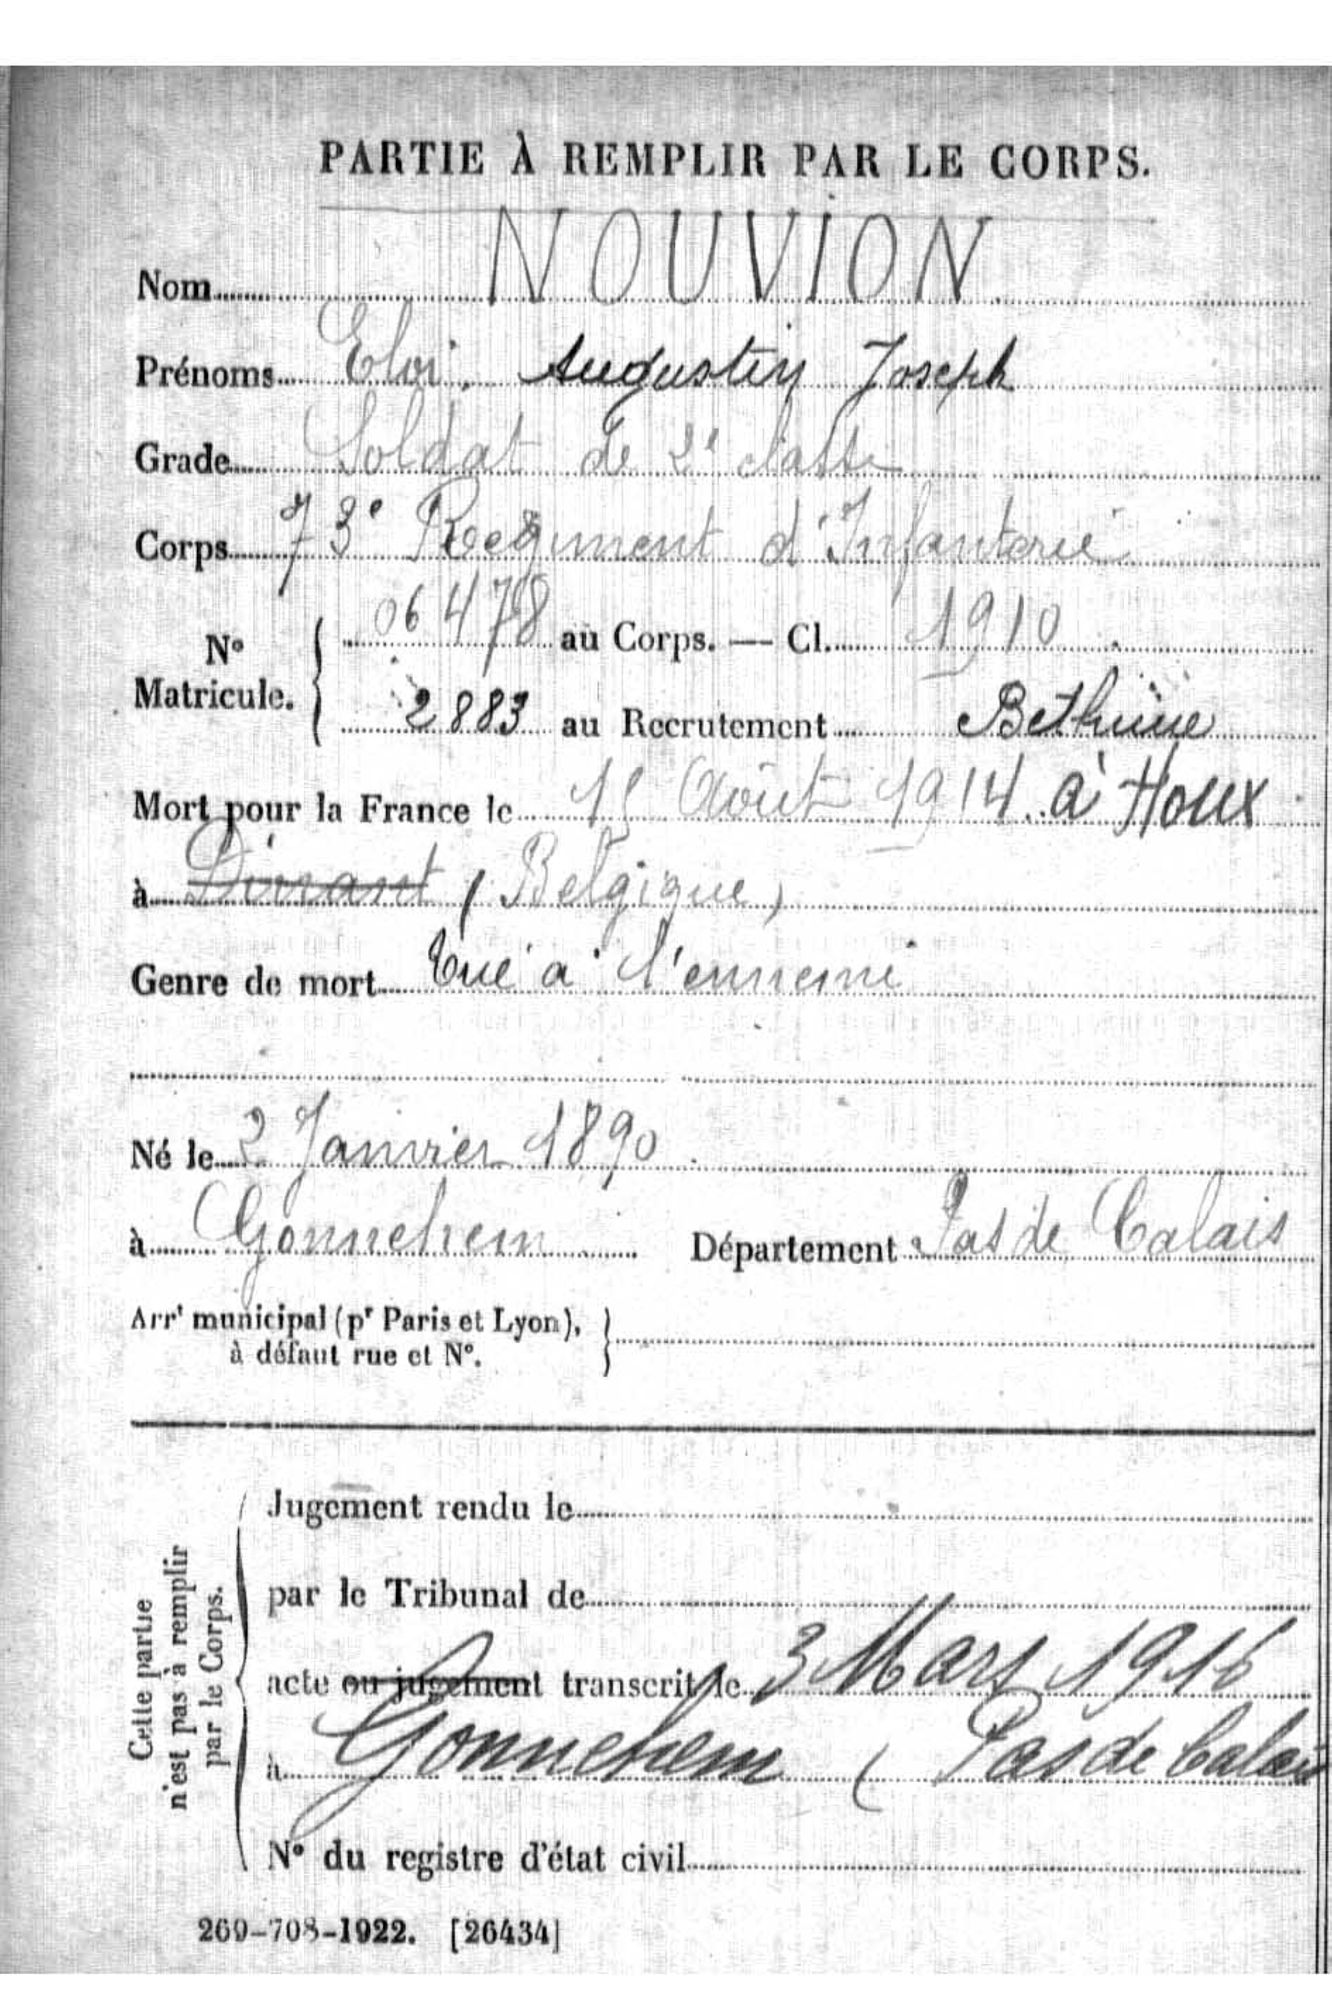 PARTIE À REMPLIR PAR LE CORPS.
Nom NOUVION
Prénoms Eloi, Augustin Joseph
Grade Soldat de 2e classe
Corps 73e Regiment d'Infanterie
No Matricule. { 06478 au Corps. — Cl. 1910
2883 au Recrutement Bethune
Mort pour la France le 15 Août 1914 à Houx
à Dinant (Belgique)
Genre de mort Tué à l'ennemi
Né le 2 Janvier 1890
à Gonnehem Département Pas de Calais
Arrt municipal (pr Paris et Lyon),
à défaut rue et No.
Cette partie
n'est pas à remplir
par le Corps.
Jugement rendu le
par le Tribunal de
acte ou jugement transcrit le 3 Mars 1916
à Gonnehem (Pas de Calais
No du registre d'état civil
269-708-1922. [26434]